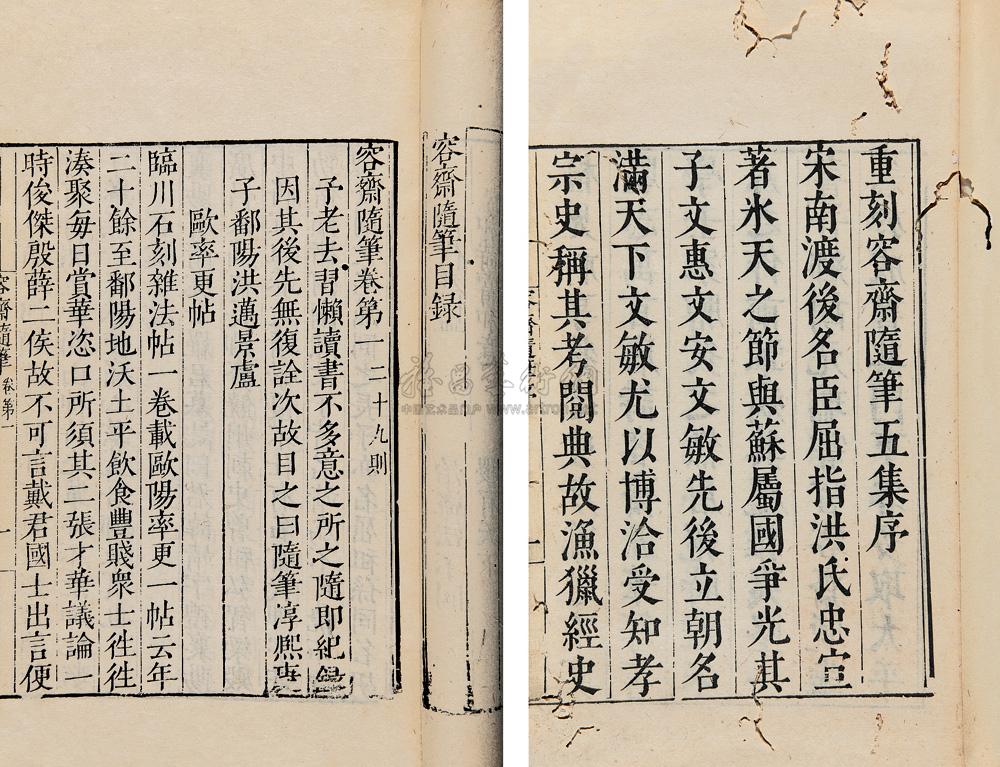 重刻容齋隨筆五集序
宋南渡後名臣屈指洪氏忠宣
著氷天之節與蘇屬國爭光其
子文惠文安文敏先後立朝名
滿天下文敏尤以博洽受知孝
宗史稱其考閱典故漁獵經史
容齋隨筆目録
容齋隨筆卷第一 二十九則
予老去習懶讀書不多意之所之隨即紀錄
因其後先無復詮次故目之曰隨筆淳熙
子鄱陽洪邁景盧
歐率更帖
臨川石刻雜法帖一卷載歐陽率更一帖云年
二十餘至鄱陽地沃土平飲食豐賤衆士徃徃
湊聚每日賞華恣口所須其二張才華議論一
時俊傑殷薛二侯故不可言戴君國士出言便
容齋隨筆 卷第一 一